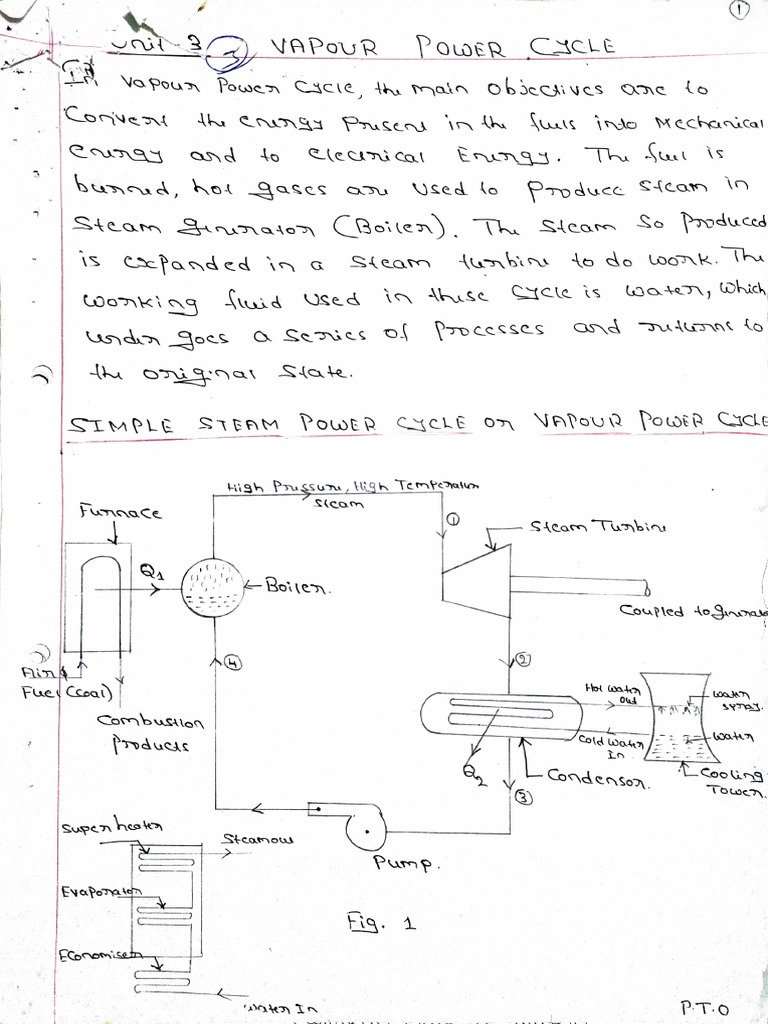 1
Unit 3 3 VAPOUR POWER CYCLE
In Vapour Power Cycle, the main objectives are to
Convert the energy Present in the fuels into Mechanical
energy and to electrical Energy. The fuel is
burned, hot gases are used to Produce steam in
Steam generator (Boiler). The Steam So Produced
is expanded in a steam turbine to do work. The
working fluid used in these Cycle is water, which
under goes a series of Processes and returns to
the original State.
SIMPLE STEAM POWER CYCLE or VAPOUR POWER CYCLE
High Pressure, High Temperatur
steam
Furnace
1
Steam Turbine
Q1
Boiler.
Coupled to generato
2
4
Air &
Fuel (coal)
Hot water
out
water
spray.
Combustion
Products
Cold Water
In
water
Q2
Condensor.
Cooling
Tower.
3
Super heater
Steamout
Pump.
Evaporator
Fig. 1
Economiser
Water In
P.T.O